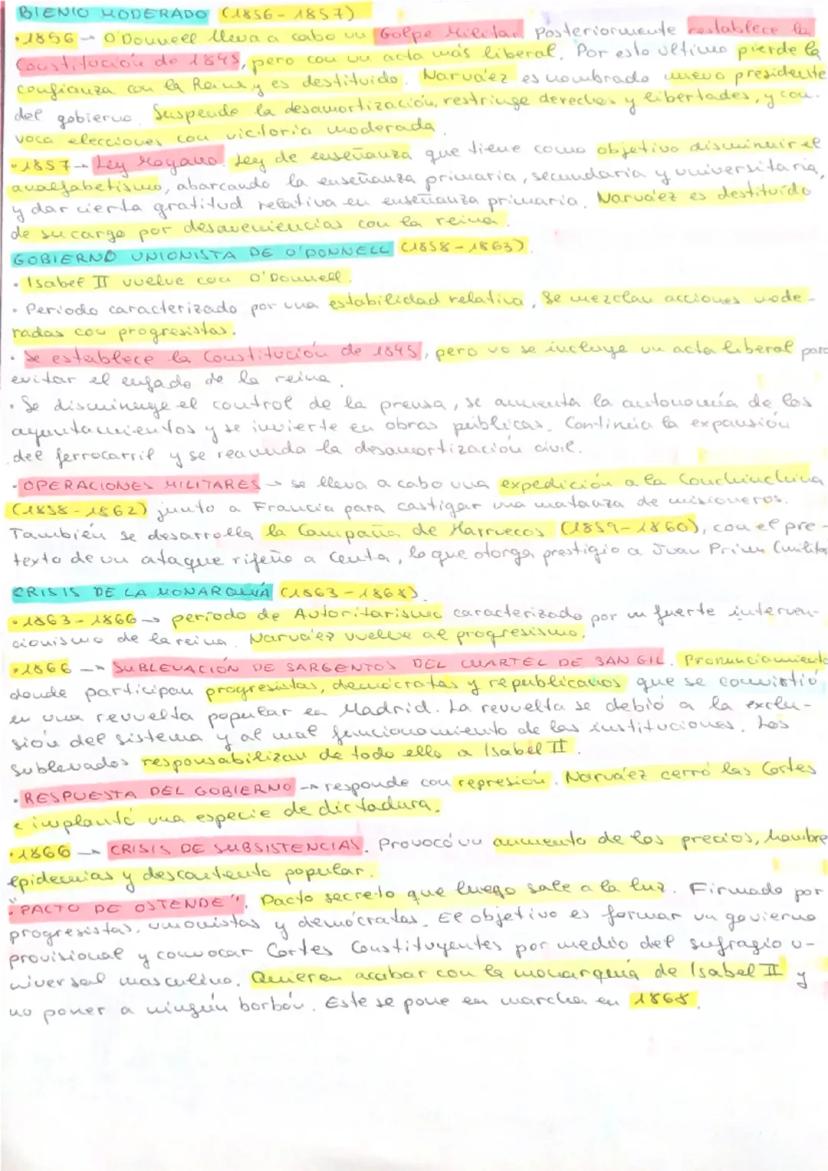 BIENIO MODERADO (1856-1857)
·1856→ O'Donnell lleva a cabo un Golpe Militar. Posteriormente restablece la
Constitución de 1845, pero con un acta más liberal. Por esto último pierde la
confianza con la Reina y es destituido. Narváez es nombrado nuevo presidente
del gobierno. Suspende la desamortización, restringe derechos y libertades, y con-
voca elecciones con victoria moderada.
·1857→ Ley Moyano. Ley de enseñanza que tiene como objetivo disminuir el
analfabetismo, abarcando la enseñanza primaria, secundaria y universitaria,
y dar cierta gratitud relativa en enseñanza primaria. Narváez es destituido
de su cargo por desaveniencias con la reina.
GOBIERNO UNIONISTA DE O'DONNELL (1858-1863).
· Isabel II vuelve con O'Donnell.
· Periodo caracterizado por una estabilidad relativa. Se mezclan acciones mode-
radas con progresistas.
· Se establece la Constitución de 1845, pero no se incluye un acta liberal para
evitar el enfado de la reina.
· Se disminuye el control de la prensa, se aumenta la autonomía de los
ayuntamientos y se invierte en obras públicas. Continúa la expansión
del ferrocarril y se reanuda la desamortización civil.
·OPERACIONES MILITARES → se lleva a cabo una expedición a la Conchinchina
(1858-1862) junto a Francia para castigar una matanza de misioneros.
También se desarrolla la Campaña de Marruecos (1859-1860), con el pre-
texto de un ataque rifeño a Ceuta, lo que otorga prestigio a Juan Prim (milita
CRISIS DE LA MONARQUÍA (1863-1868).
·1863-1866→ periodo de Autoritarismo caracterizado por un fuerte interven-
cionismo de la reina. Narváez vuelve al progresismo.
·1866 → SUBLEVACIÓN DE SARGENTOS DEL CUARTEL DE SAN GIL. Pronunciamiento
donde participan progresistas, demócratas y republicanos que se convirtió
en una revuelta popular en Madrid. La revuelta se debió a la exclu-
sión del sistema y al mal funcionamiento de las instituciones. Los
sublevados responsabilizan de todo ello a Isabel II.
·RESPUESTA DEL GOBIERNO → responde con represión. Narváez cerró las Cortes
e implantó una especie de dictadura.
·1866 → CRISIS DE SUBSISTENCIAS. Provocó un aumento de los precios, hambre
epidemias y descontento popular.
·"PACTO DE OSTENDE". Pacto secreto que luego sale a la luz. Firmado por
progresistas, unionistas y demócratas. El objetivo es formar un govierno
provisional y convocar Cortes Constituyentes por medio del sufragio u-
niversal masculino. Quieren acabar con la monarquía de Isabel II y
no poner a ningún borbón. Este se pone en marcha en 1868.